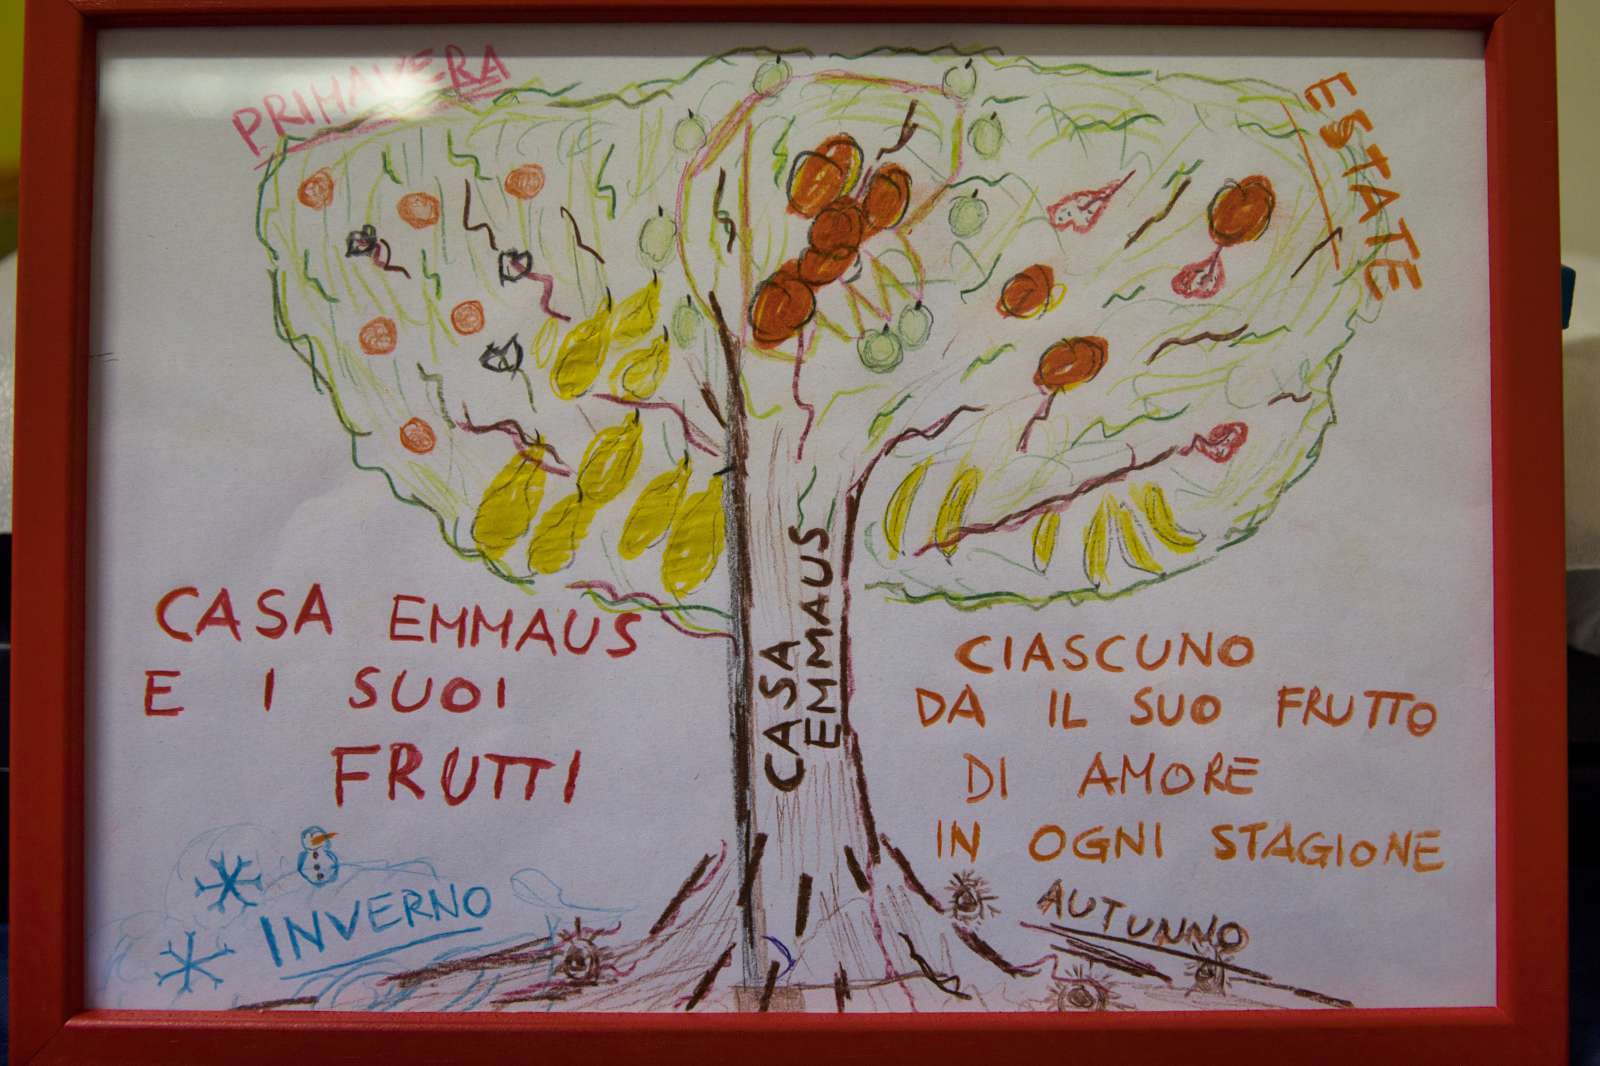 PRIMAVERA
ESTATE
CASA EMMAUS
E I SUOI
FRUTTI
CASA
EMMAUS
CIASCUNO
DA IL SUO FRUTTO
DI AMORE
IN OGNI STAGIONE
INVERNO
AUTUNNO